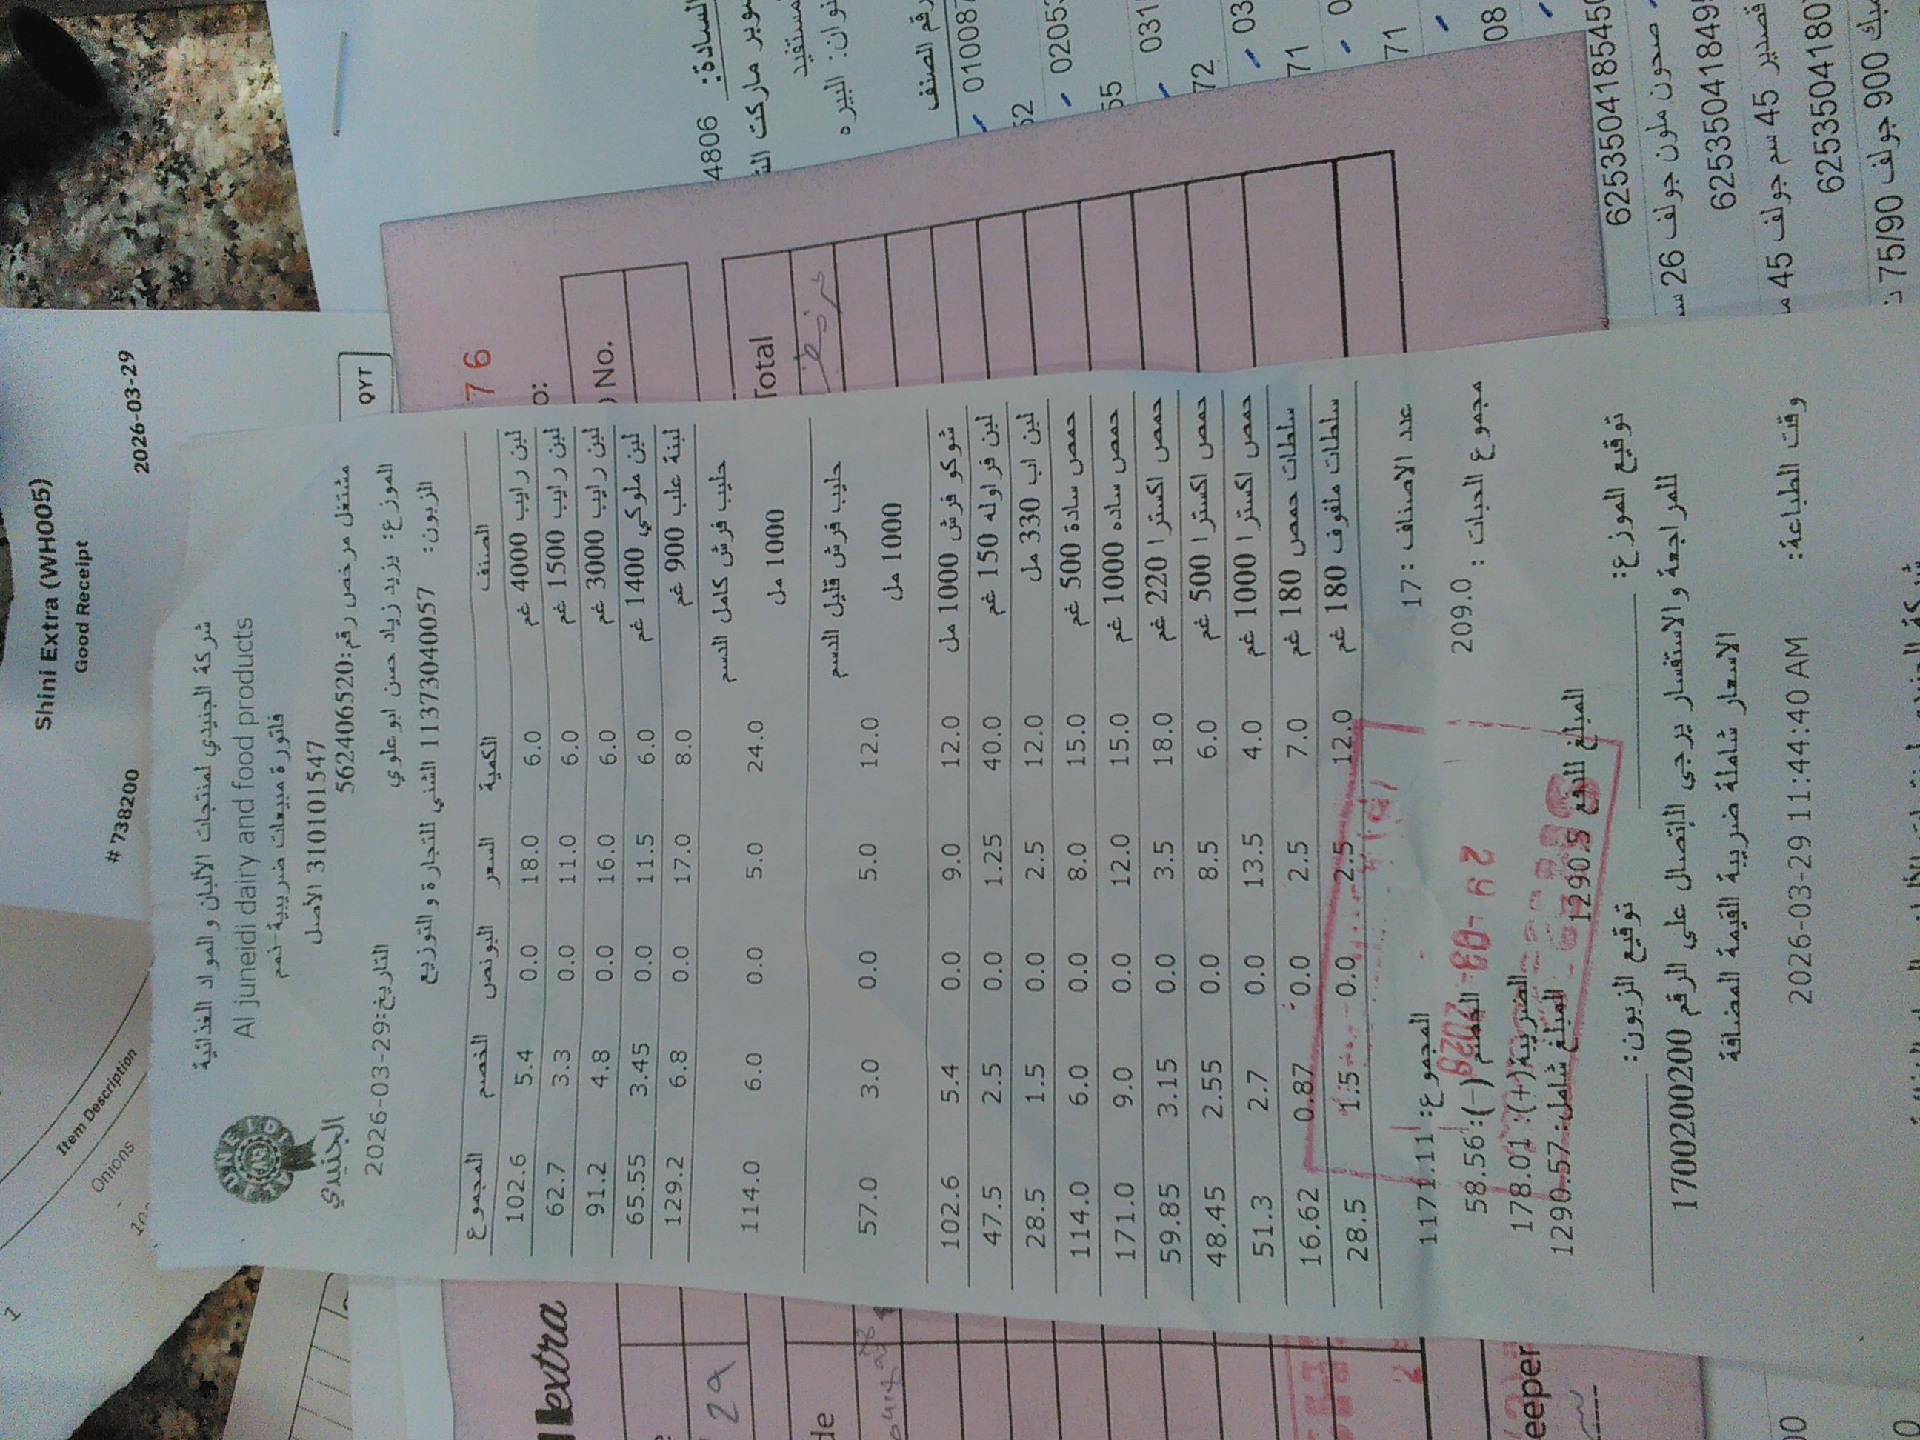 Shini Extra (WH005)
Good Receipt
#738200
2026-03-29
Item Description
QYT
Onions
شركة الجنيدي لمنتجات الألبان والمواد الغذائية
Al juneidi dairy and food products
فاتورة مبيعات ضريبية-نمم
310101547 الأصل
الجنيدي
مشتغل مرخص رقم:562406520
الموزع: يزيد زياد حسن ابو علوي
التاريخ:2026-03-29
الزبون: 11373040057 الشني للتجارة والتوزيع
الصنف الكمية السعر البونص الخصم المجموع
لبن رايب 4000 غم 6.0 18.0 0.0 5.4 102.6
لبن رايب 1500 غم 6.0 11.0 0.0 3.3 62.7
لبن رايب 3000 غم 6.0 16.0 0.0 4.8 91.2
لبن ملوكي 1400 غم 6.0 11.5 0.0 3.45 65.55
لبنة علب 900 غم 8.0 17.0 0.0 6.8 129.2
حليب فرش كامل الدسم
1000 مل 24.0 5.0 0.0 6.0 114.0
حليب فرش قليل الدسم
1000 مل 12.0 5.0 0.0 3.0 57.0
شوكو فرش 1000 مل 12.0 9.0 0.0 5.4 102.6
لبن فراوله 150 غم 40.0 1.25 0.0 2.5 47.5
لبن اب 330 مل 12.0 2.5 0.0 1.5 28.5
حمص سادة 500 غم 15.0 8.0 0.0 6.0 114.0
حمص ساده 1000 غم 15.0 12.0 0.0 9.0 171.0
حمص اكسترا 220 غم 18.0 3.5 0.0 3.15 59.85
حمص اكسترا 500 غم 6.0 8.5 0.0 2.55 48.45
حمص اكسترا 1000 غم 4.0 13.5 0.0 2.7 51.3
سلطات حمص 180 غم 7.0 2.5 0.0 0.87 16.62
سلطات ملفوف 180 غم 12.0 2.5 0.0 1.5 28.5
عدد الاصناف : 17
المجموع: 1171.11
مجموع الحبات : 209.0
الخصم(-): 58.56
الضريبة(+): 178.01
المبلغ شامل: 1290.57
المبلغ للدفع 1290.5
29 -03- 2026
توقيع الموزع:
توقيع الزبون:
للمراجعة والاستفسار يرجى الاتصال على الرقم 1700200200
الاسعار شاملة ضريبة القيمة المضافة
وقت الطباعة: 2026-03-29 11:44:40 AM
76
No.
Total
extra
29
eeper
4806
السادة:
سوبر ماركت
مستفيد
البيره
رقم الصنف
62
55
72
71
71
08
صحون ملون جولف 26
قصدير 45 سم جولف 45
900 جولف 75/90